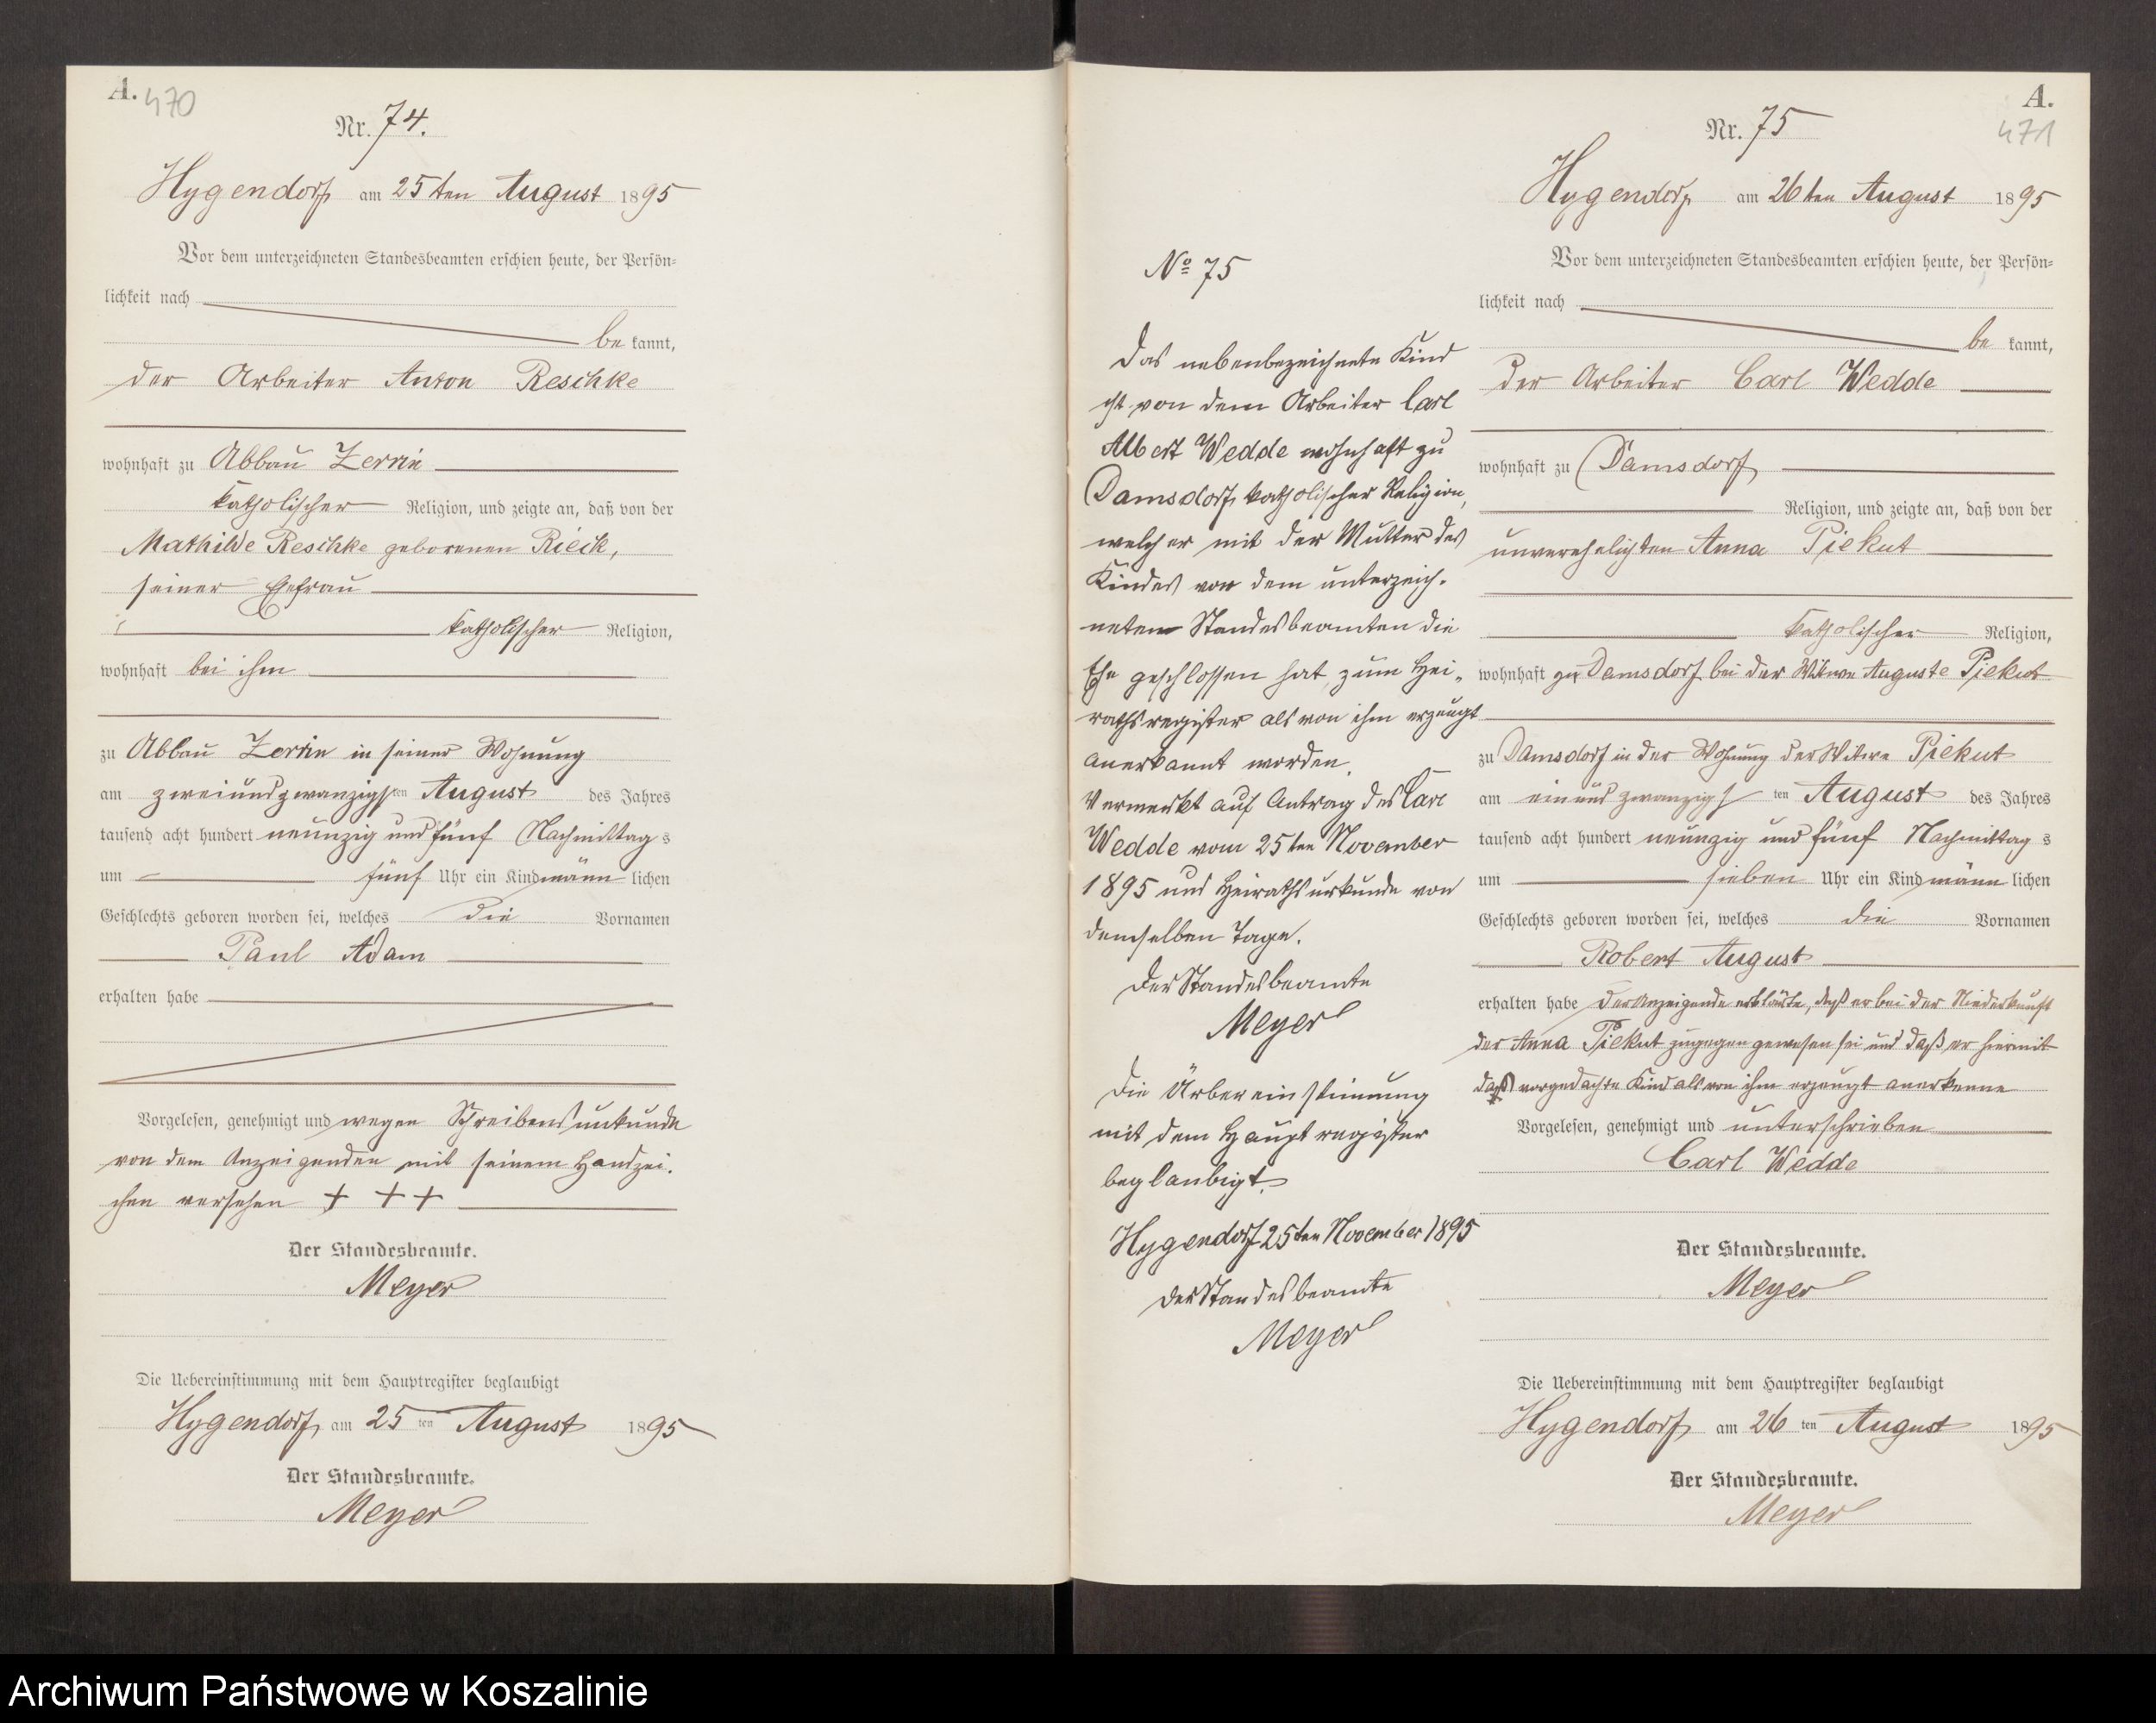 A.
470
Nr. 74.
Hygendorf, am 25ten August 1895
Vor dem unterzeichneten Standesbeamten erschien heute, der Persön=
lichkeit nach
be kannt,
der Arbeiter Anton Reschke
wohnhaft zu Abbau Zerrin
katholischer Religion, und zeigte an, daß von der
Mathilde Reschke geborenen Rieck,
seiner Ehefrau
katholischer Religion,
wohnhaft bei ihm
zu Abbau Zerrin in seiner Wohnung
am zweiundzwanzigsten August des Jahres
tausend acht hundert neunzig und fünf Nachmittag s
um fünf Uhr ein Kind männ lichen
Geschlechts geboren worden sei, welches die Vornamen
Paul Adam
erhalten habe
Vorgelesen, genehmigt und wegen Schreibensunkunde
von dem Anzeigenden mit seinem Handzei-
chen versehen + + +
Der Standesbeamte.
Meyer
Die Uebereinstimmung mit dem Hauptregister beglaubigt
Hygendorf, am 25 ten August 1895
Der Standesbeamte.
Meyer
No 75
Das nebenbezeichnete Kind
ist von dem Arbeiter Carl
Albert Wedde wohnhaft zu
Damsdorf, katholischer Religion,
welcher mit der Mutter des
Kindes vor dem unterzeich-
neten Standesbeamten die
Ehe geschlossen hat, zum Hei-
rathsregister als von ihm erzeugt
anerkannt worden.
Vermerkt auf Antrag des Carl
Wedde vom 25ten November
1895 und Heirathsurkunde von
demselben Tage.
Der Standesbeamte
Meyer
Die Übereinstimmung
mit dem Hauptregister
beglaubigt.
Hygendorf 25ten November 1895
Der Standesbeamte
Meyer
A.
471
Nr. 75
Hygendorf, am 26ten August 1895
Vor dem unterzeichneten Standesbeamten erschien heute, der Persön=
lichkeit nach
be kannt,
der Arbeiter Carl Wedde
wohnhaft zu Damsdorf
Religion, und zeigte an, daß von der
unverehelichten Anna Piekut
katholischer Religion,
wohnhaft zu Damsdorf bei der Witwe Auguste Piekut
zu Damsdorf in der Wohnung der Witwe Piekut
am einundzwanzigs ten August des Jahres
tausend acht hundert neunzig und fünf Nachmittag s
um sieben Uhr ein Kind männ lichen
Geschlechts geboren worden sei, welches die Vornamen
Robert August
erhalten habe Der Anzeigende erklärte, daß er bei der Niederkunft
der Anna Piekut zugegen gewesen sei und daß er hiermit
das vorgedachte Kind als von ihm erzeugt anerkenne
Vorgelesen, genehmigt und unterschrieben
Carl Wedde
Der Standesbeamte.
Meyer
Die Uebereinstimmung mit dem Hauptregister beglaubigt
Hygendorf, am 26 ten August 1895
Der Standesbeamte.
Meyer
Archiwum Państwowe w Koszalinie